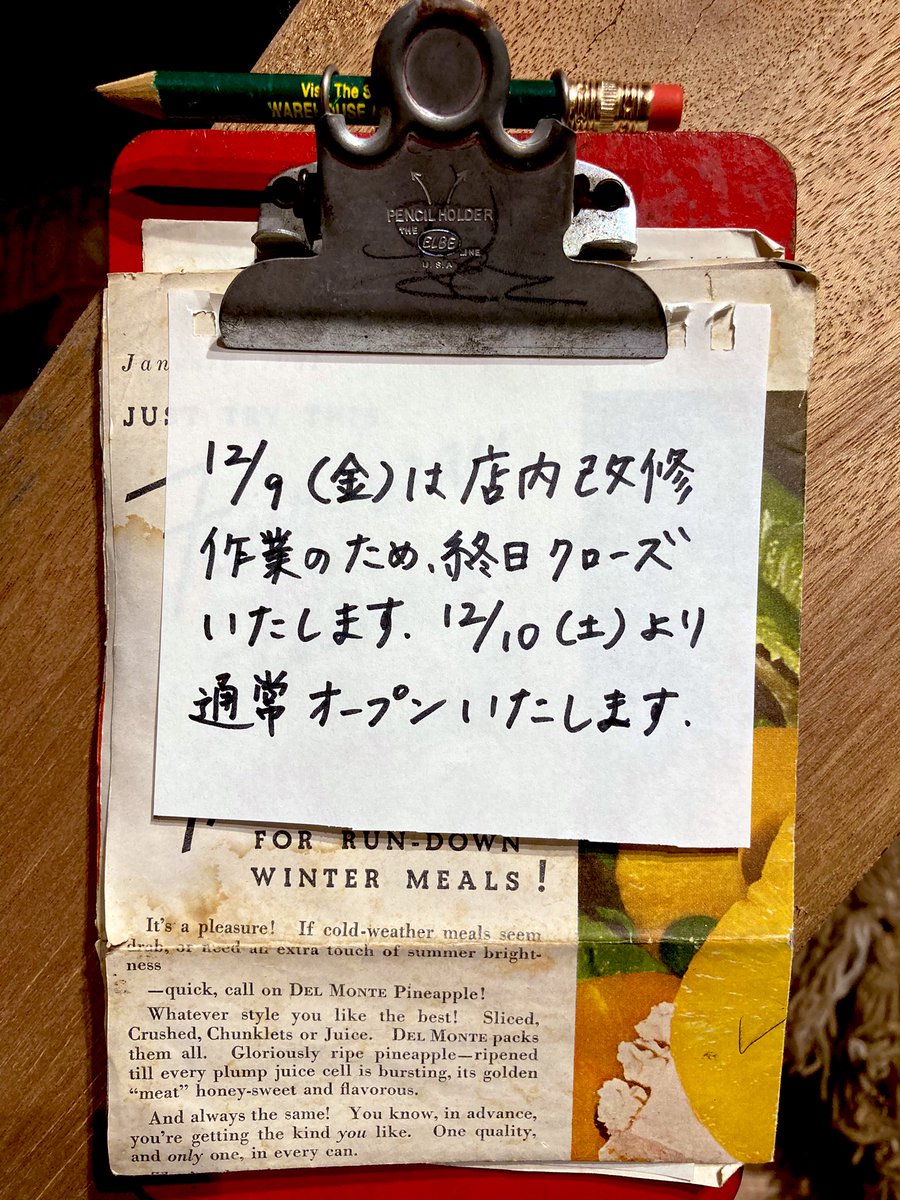 Visit The S
WAREHOUSE
PENCIL HOLDER
THE ELBE LINE
U.S.A
Jan
JUST TRY THIS
12/9（金）は店内改修
作業のため、終日クローズ
いたします. 12/10（土）より
通常オープンいたします.
FOR RUN-DOWN
WINTER MEALS!
It's a pleasure! If cold-weather meals seem
drab, or need an extra touch of summer bright-
ness
—quick, call on DEL MONTE Pineapple!
Whatever style you like the best! Sliced,
Crushed, Chunklets or Juice. DEL MONTE packs
them all. Gloriously ripe pineapple—ripened
till every plump juice cell is bursting, its golden
“meat” honey-sweet and flavorous.
And always the same! You know, in advance,
you're getting the kind you like. One quality,
and only one, in every can.